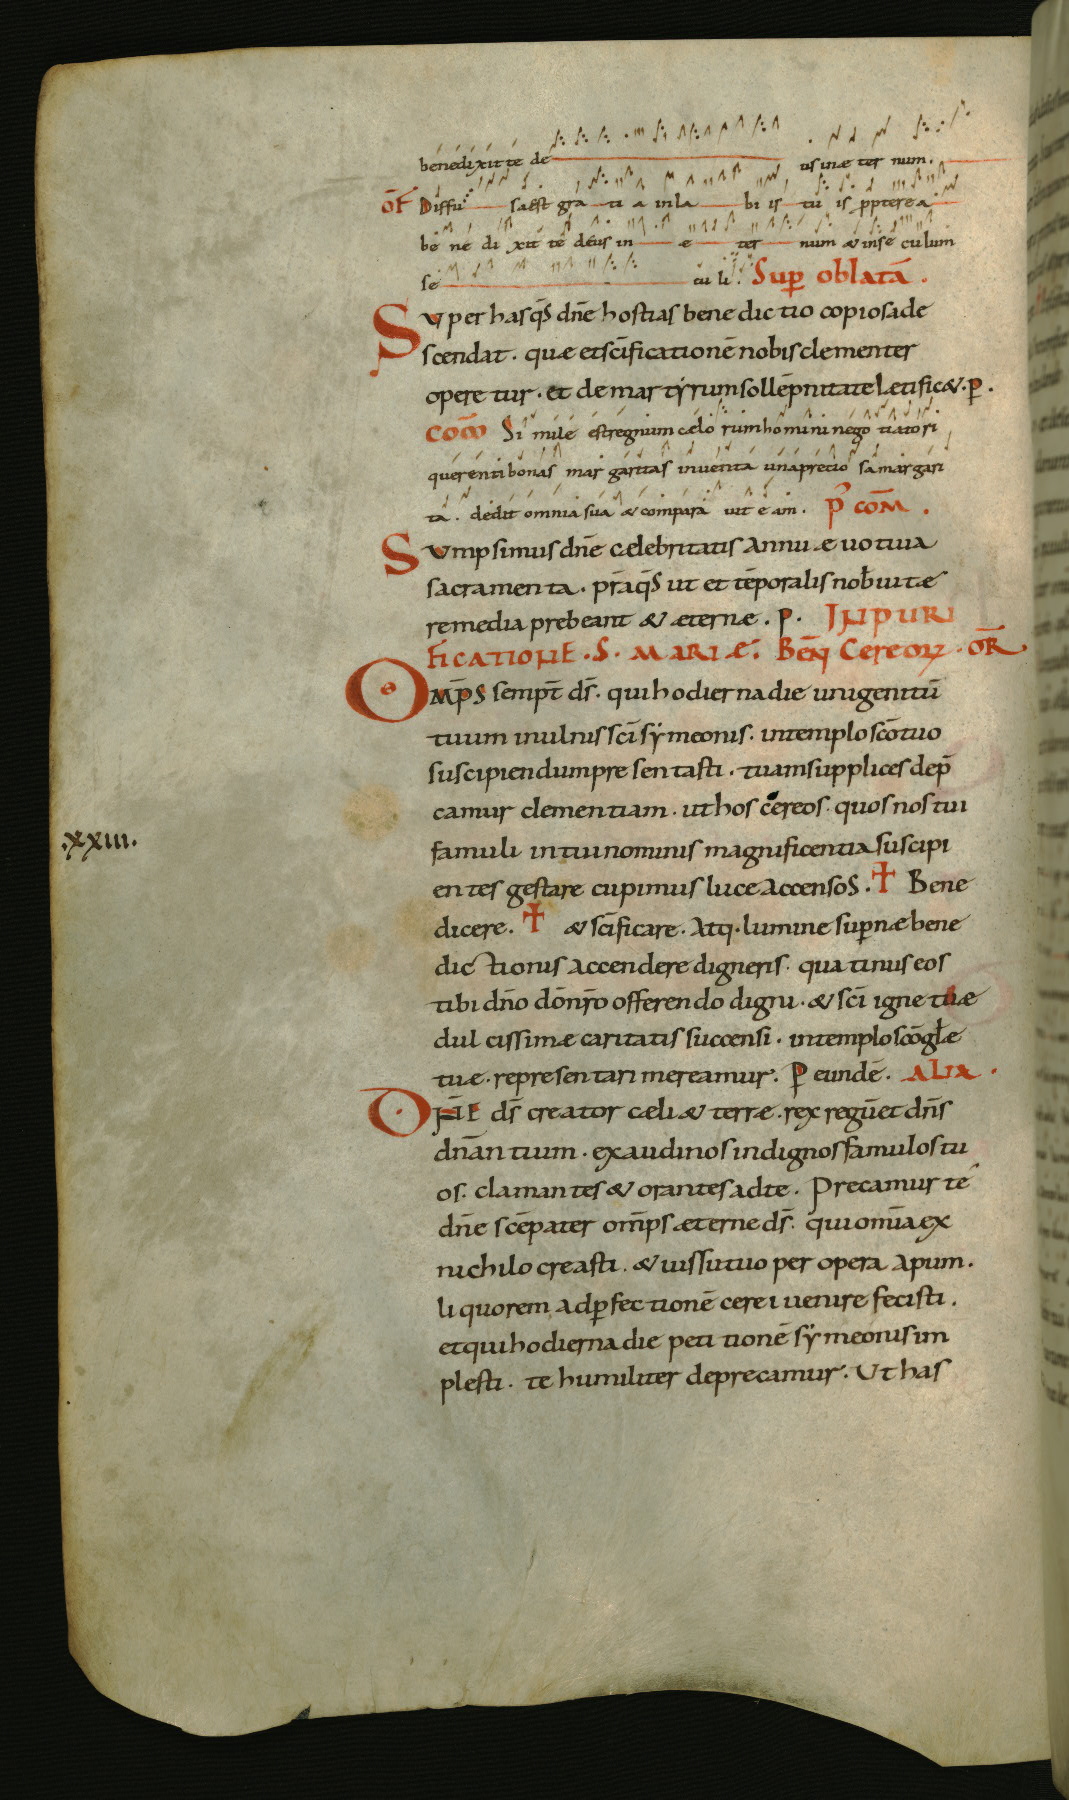 benedixit te de us in æter num.
OF Diffu sa est gra ti a in la bi is tu is ꝓpterea
be ne di xit te deus in e ter num & in se culum
se cu li. Suꝑ oblatā.
Super has q̄s dn̄e hostias bene dic tio copiosa de
scendat. quæ et sc̄ificationē nobis clementer
opere tur. et de martẏrum sollēpnitate Letific&. p.
COM̄ Si mile est regnum cælo rum homini nego tiatori
querenti bonas mar garitas inventa una pretio sa margari
ta. dedit omnia sua & compara vit e am. P̄ COM̄.
Sumpsimus dn̄e cælebritatis Annuæ uotiua
sacramenta. p̄ra q̄s ut et tēporalis nob uitæ
remedia prebeant & æternæ. p. IN PURI
FICATIONE. S. MARIÆ. BEN̄ Cereoꝝ. OR̄
Om̄ps sempt̄ ds̄. qui hodierna die unigenitū
tuum in ulnis sc̄i sẏmeonis. in templo sc̄o tuo
suscipiendum presentasti. tuam supplices dep̄
camur clementiam. ut hos cereos. quos nos tui
.xxiii.
famuli in tui nominis magnificentia suscipi
entes gestare cupimus luce accensos. ✝ Bene
dicere. ✝ & sc̄ificare. Atq. lumine suꝑnæ bene
dic tionis accendere digneris. quatinus eos
tibi dn̄o dō nr̄o offerendo digni. & sc̄i igne tuæ
dulcissimæ caritatis succensi. in templo sc̄o glæ
tuæ. representari mereamur. P eundē. ALIA.
DN̄E ds̄ creator cæli & terræ. rex regū et dn̄s
dn̄antium. exaudi nos indignos famulos tu
os. clamantes & orantes ad te. Precamur te
dn̄e sc̄e pater om̄ps æterne ds̄. qui om̄ia ex
nichilo creasti. & iussu tuo per opera apum.
liquorem ad ꝑfectionē cerei uenire fecisti.
et qui hodierna die petitionē sẏmeonis im
plesti. te humiliter deprecamur. Ut has